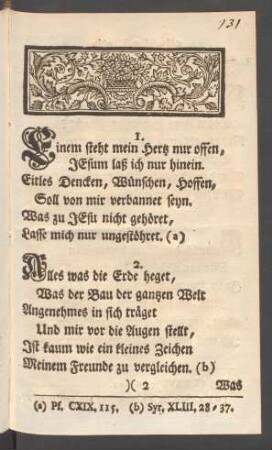 131
1.
Einem steht mein Hertz nur offen,
JEsum laß ich nur hinein.
Eitles Dencken, Wünschen, Hoffen,
Soll von mir verbannet seyn.
Was zu JEsu nicht gehöret,
Lasse mich nur ungestöhret. (a)
2.
Alles was die Erde heget,
Was der Bau der gantzen Welt
Angenehmes in sich träget
Und mir vor die Augen stellt,
Ist kaum wie ein kleines Zeichen
Meinem Freunde zu vergleichen. (b)
)( 2 Was
(a) Ps. CXIX, 115. (b) Syr. XLIII, 28-37.